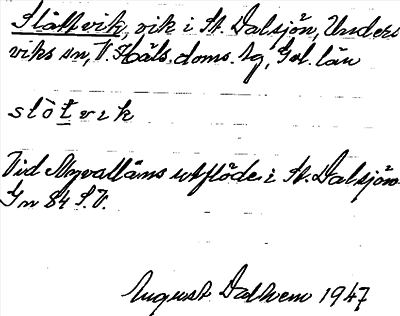 Slåttvik, vik i St. Dalsjön, Unders
viks sn, V. Häls. doms. sg, Gvl. län
slòt vik
Vid Myvattäns utflöde i St. Dalsjön
Gn 84 S.V.
August Dalhem 1947